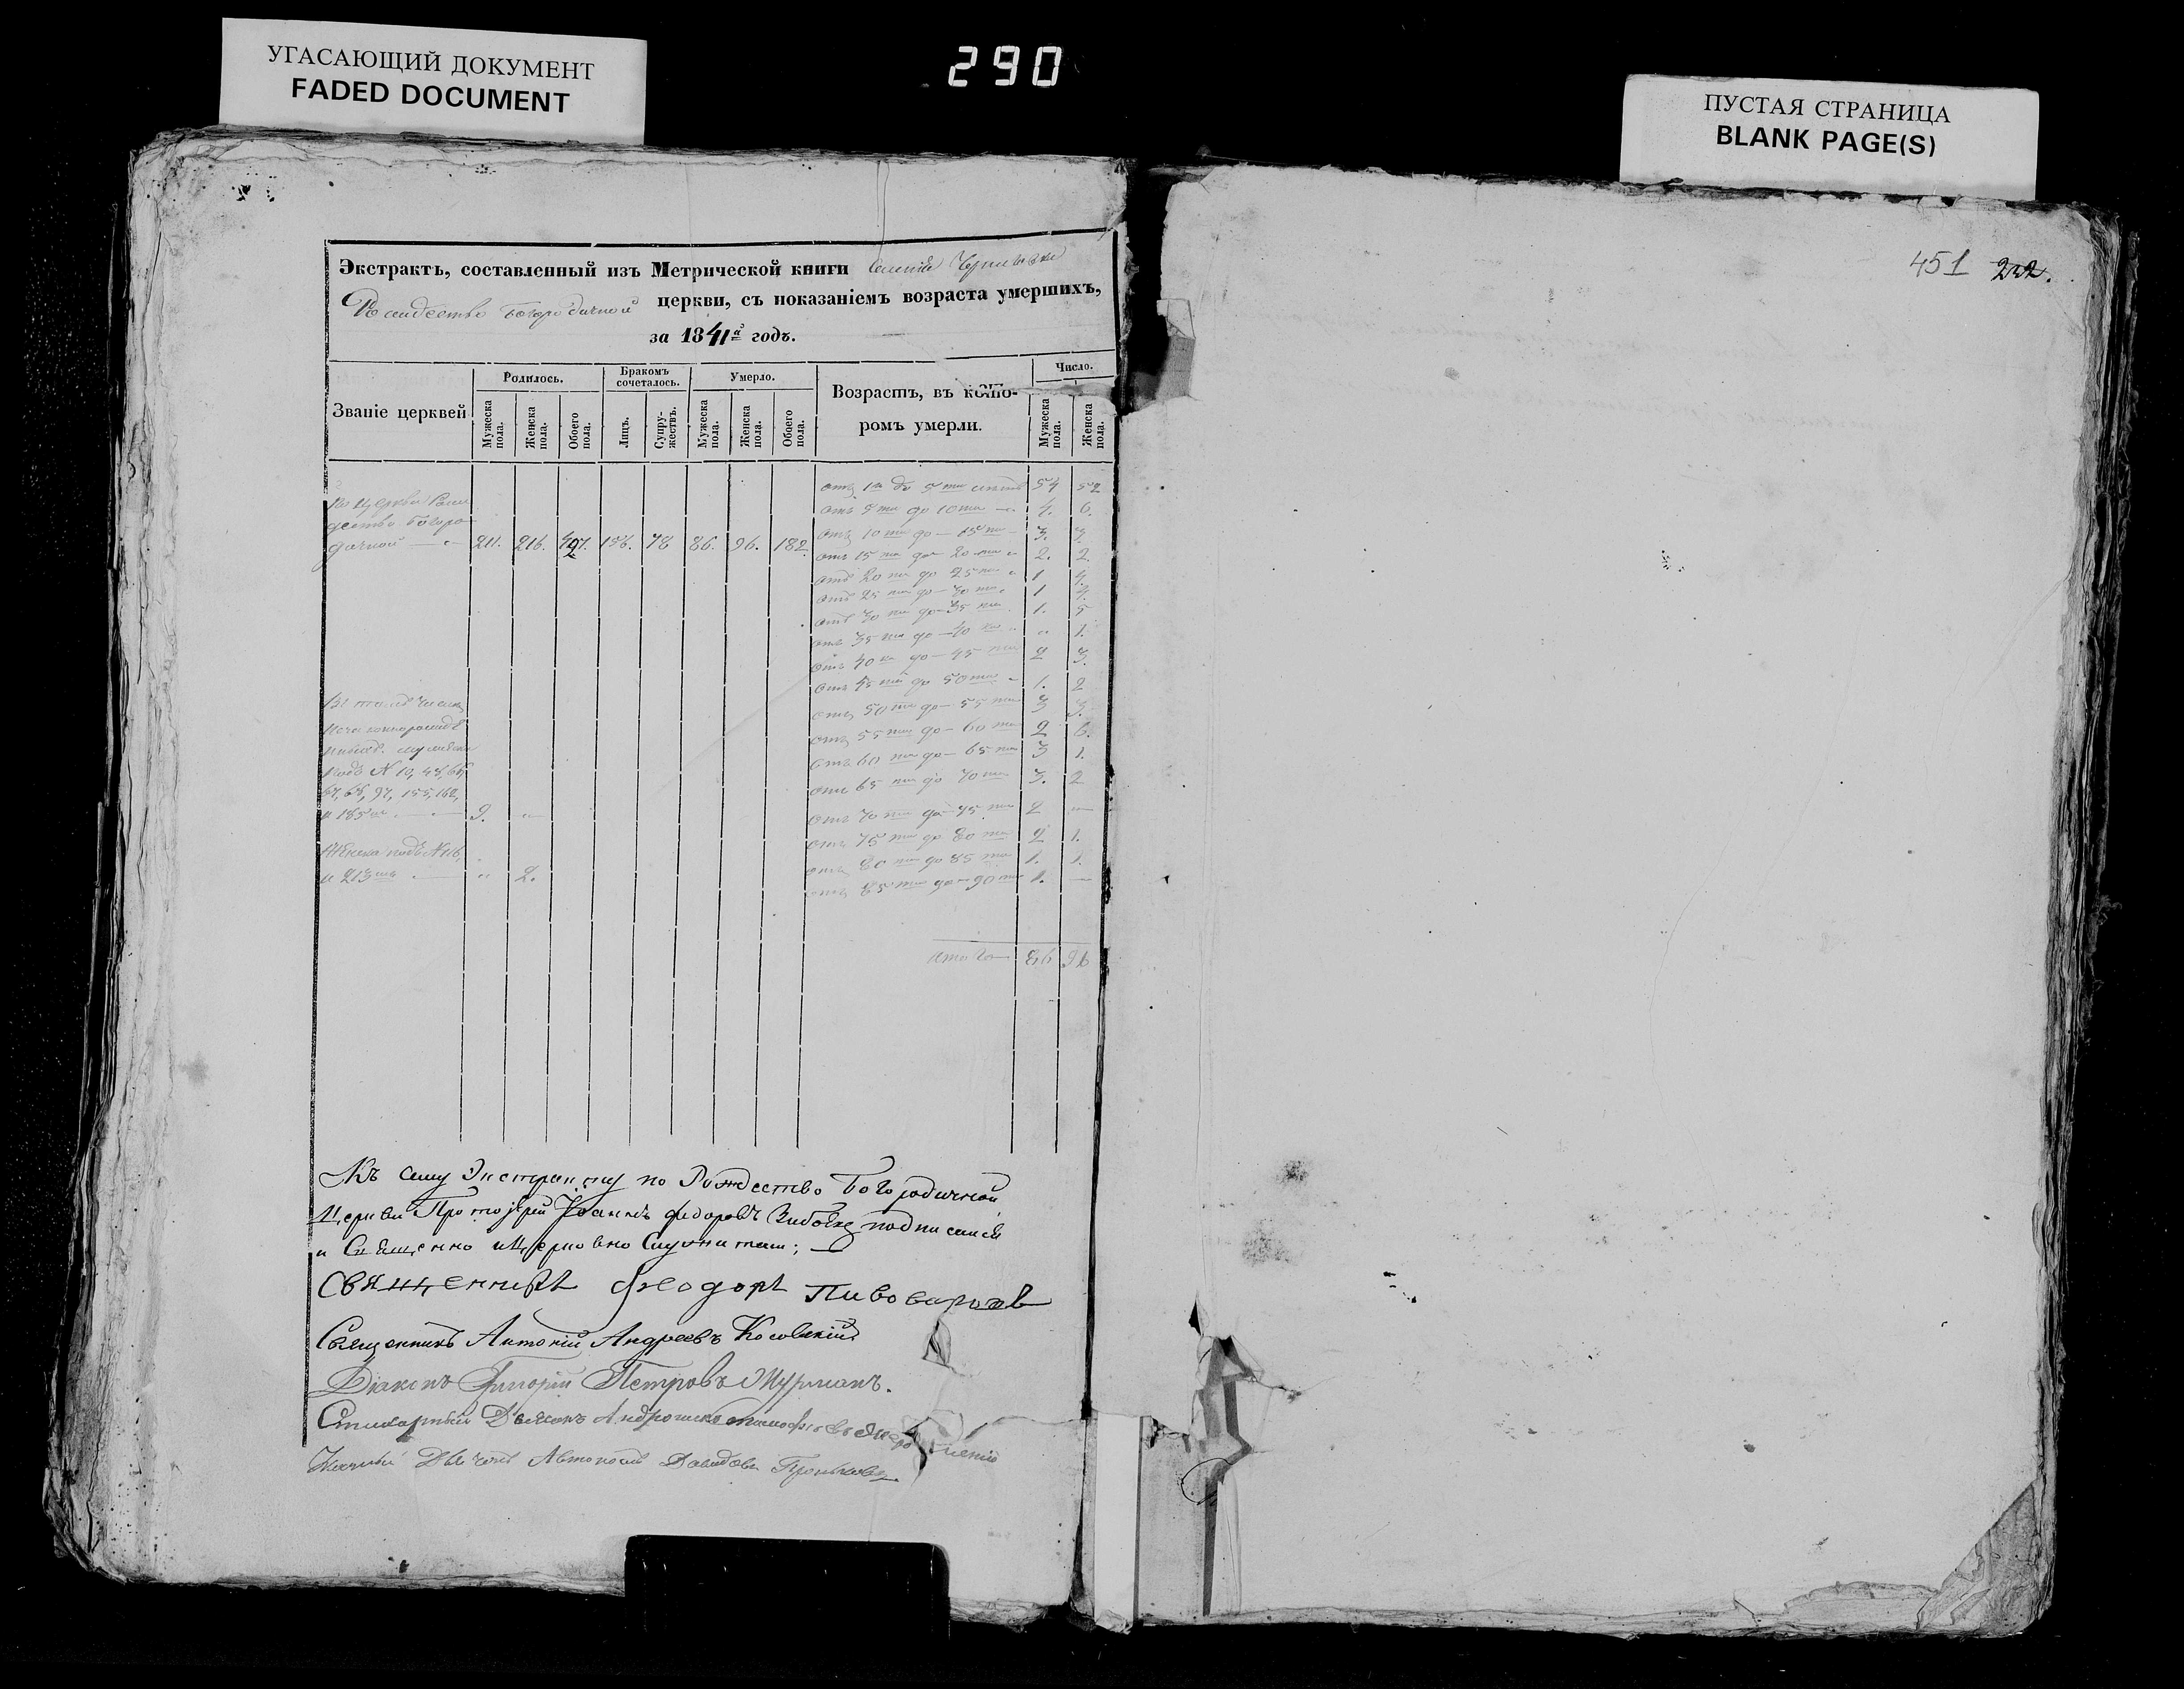 УГАСАЮЩИЙ ДОКУМЕНТ
FADED DOCUMENT
290
ПУСТАЯ СТРАНИЦА
BLANK PAGE(S)
451 232.
Экстрактъ, составленный изъ Метрической книги селенія Черниговки
Рождество Богородичной церкви, съ показаніемъ возраста умершихъ,
за 1841й годъ.
Званіе церквей
Родилось.
Мужеска пола.
Женска пола.
Обоего пола.
Бракомъ сочеталось.
Лицъ.
Супружествъ.
Умерло.
Мужеска пола.
Женска пола.
Обоего пола.
Возрастъ, въ кото-
ромъ умерли.
Число.
Мужеска пола.
Женска пола.
По церкви Рож
дество Богоро
дичной 211. 216. 427. 156. 78 86. 96. 182.
отъ 1го до 5ти лѣтъ 54 52
отъ 5ти до 10ти 4. 6.
отъ 10ти до 15ти 3. 3.
отъ 15ти до 20ти 2. 2
отъ 20ти до 25ти 1 4.
отъ 25ти до 30ти 1 4.
отъ 30ти до 35ти 1. 5
отъ 35ти до 40ка " 1.
отъ 40ка до 45ти 2 3.
отъ 45ти до 50ти 1. 2
отъ 50ти до 55ти 3 3.
отъ 55ти до 60ти 2 6.
отъ 60ти до 65ти 3 1.
отъ 65ти до 70ти 3. 2
отъ 70ти до 75ти 2 —
отъ 75ти до 80ти 2 1.
отъ 80ти до 85ти 1. 1.
отъ 85ти до 90ти 1. —
итого 86 96
Въ томъ числѣ
незаконнорожд
мужеска
подъ N 19, 155, 162,
и 185 9. "
Женска подъ N 116,
и 213 " 2.
Къ сему Экстракту по Рождество Богородичной
Церкви Протоіерей Іоаннъ Федоровъ подписался
и Священно и Церковно Служители;
Священникъ Феодоръ Пивоваровъ
Священникъ Антоній Андреевъ Косовскій
Діаконъ Григорій Петровъ Шурманъ.
Стихарный Дьячокъ
Дьячокъ Автономъ Давидовъ